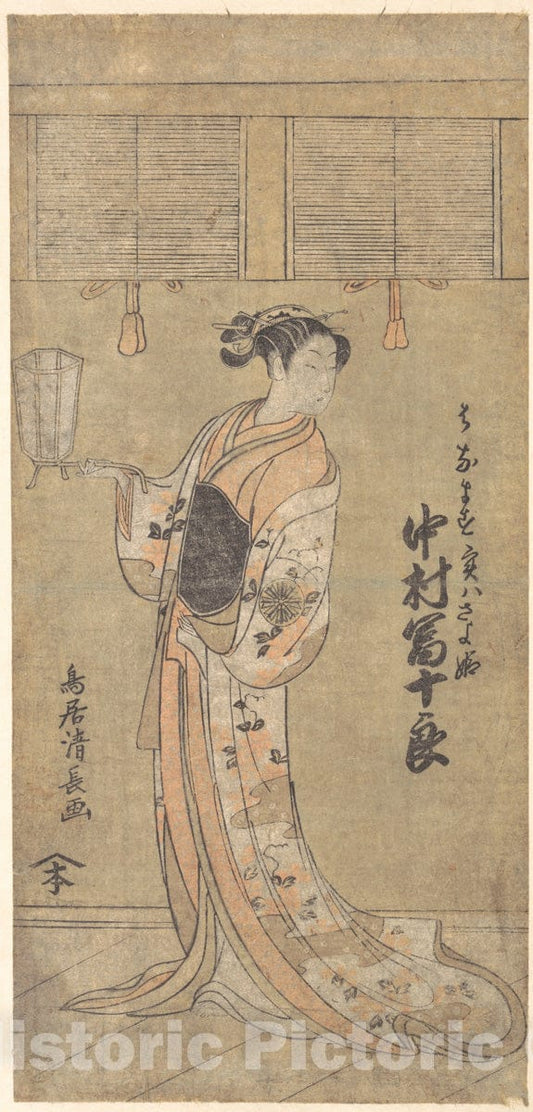 さよ姫
中村富十郎
鳥居清長画
本
Historic Pictoric